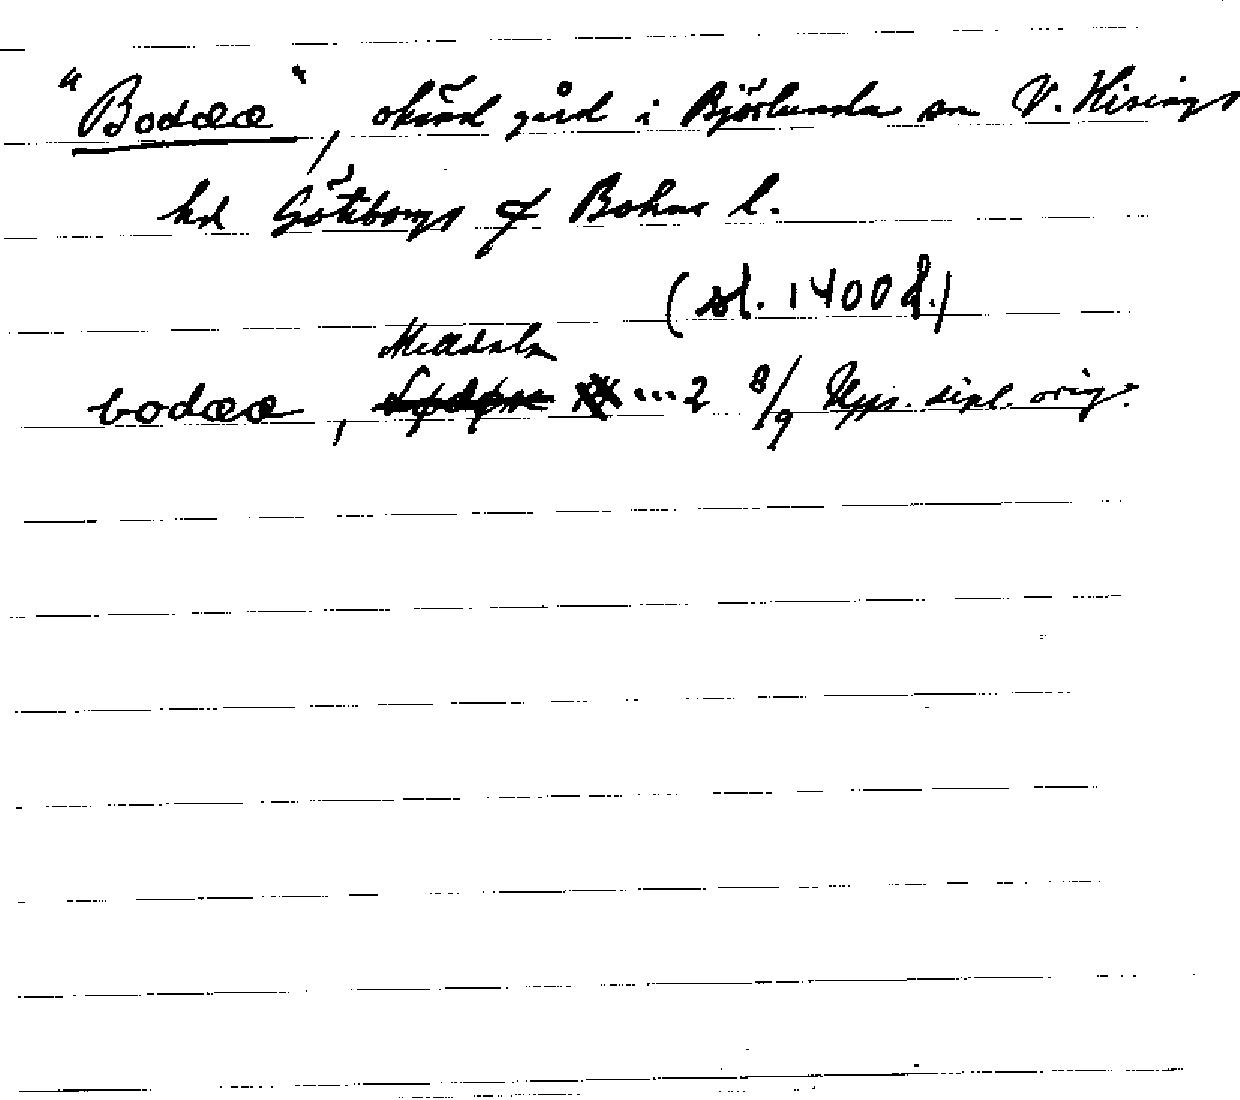 "Bodææ", okänd gård i Björlanda sn V. Hisings
hd Göteborgs o Bohus l.
(sl. 1400 t.)
bodææ, ... 2 8/9 Upps. dipl. orig.